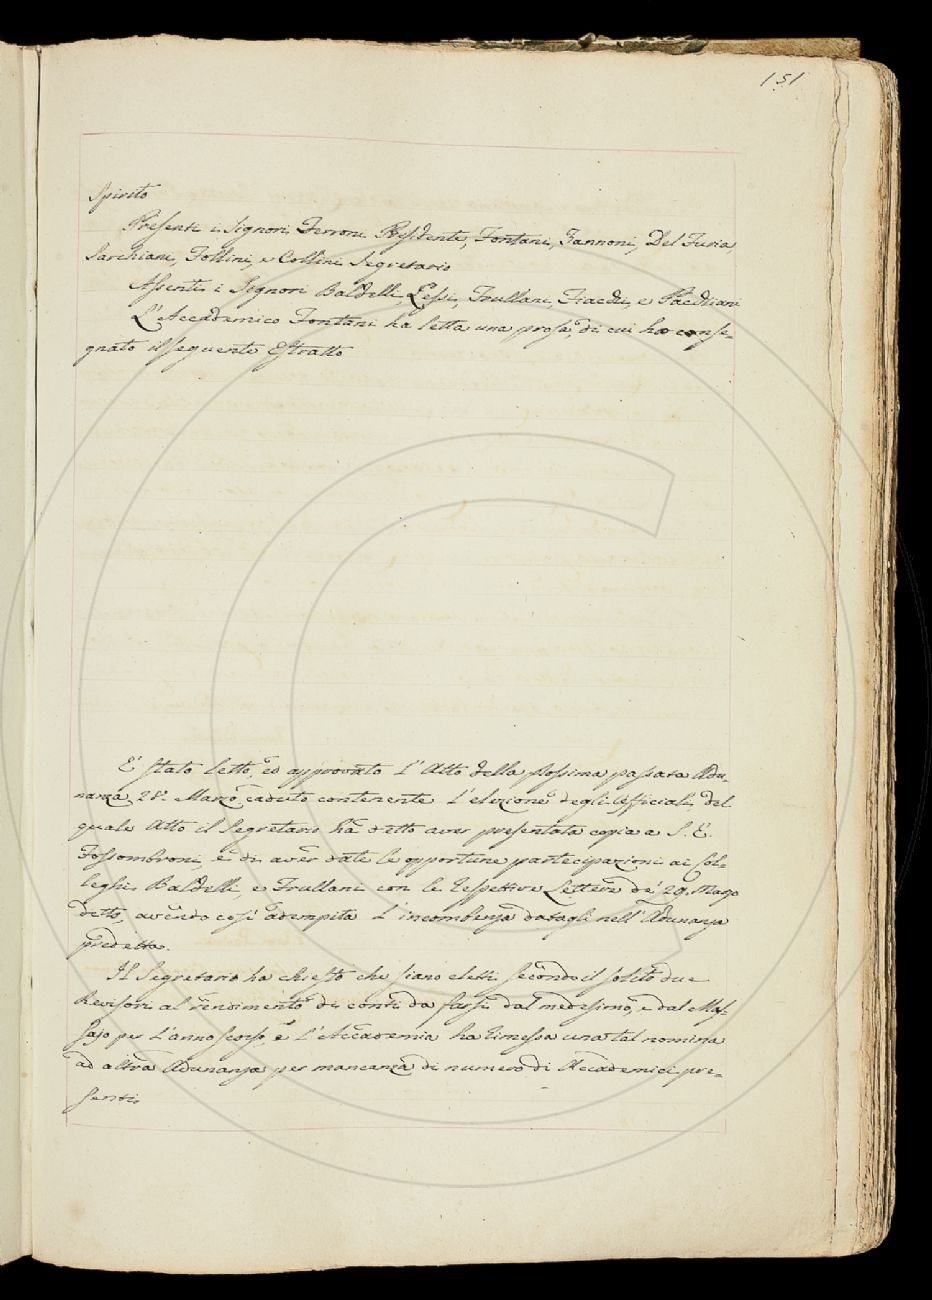 151
Spirito
Presenti i Signori Ferroni Presidente, Fontani, Zannoni, Del Furia,
Sarchiani, Follini, e Collini Segretario
Assenti i Signori Baldelli, Lessi, Frullani, Fiacchi, e
L'Accademico Fontani ha letta una prosa, di cui ha conse-
gnato il seguente Estratto
È stato letto, ed approvato l'Atto della prossima passata Adu-
nanza 28. Marzo caduto contenente l'elezione degli Ufficiali, del
quale Atto il Segretario ha detto aver presentata copia a S. E.
Fossombroni, e di aver date le opportune partecipazioni ai Col-
leghi Baldelli, e Frullani con le respettive Lettere de' 29. Marzo
detto, avendo così adempita l'incombenza datagli nell'Adunanza
predetta.
Il Segretario ha chiesto che siano eletti secondo il solito due
Revisori al rendimento di conti da farsi dal medesimo, e dal Mas-
sajo per l'anno scorso, e l'Accademia ha rimessa una tal nomina
ad altra Adunanza per mancanza di numero di Accademici pre-
senti.